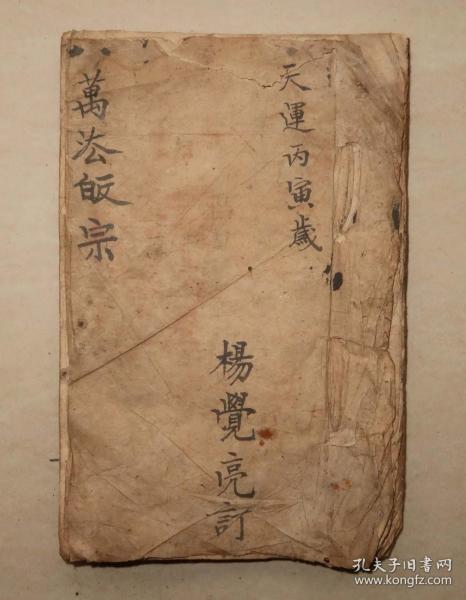 天運丙寅歲
楊覺亮訂
萬法皈宗
孔夫子旧书网
www.kongfz.com